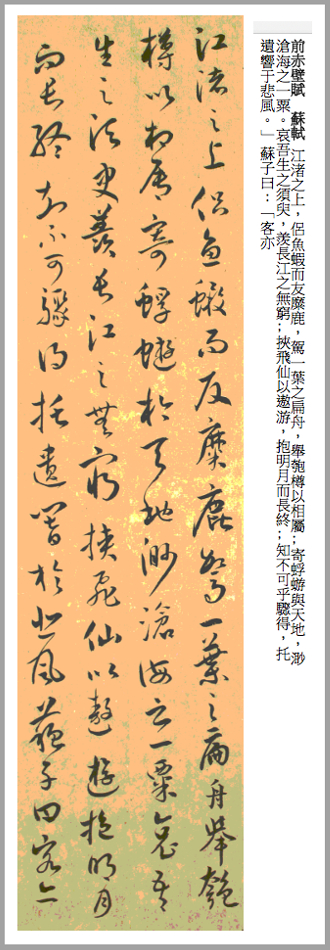 前赤壁賦　蘇軾 江渚之上，侶魚蝦而友麋鹿，駕一葉之扁舟，舉匏樽以相屬；寄蜉蝣與天地，渺
滄海之一粟。哀吾生之須臾，羨長江之無窮；挾飛仙以遨游，抱明月而長終；知不可乎驟得，托
遺響于悲風。」蘇子曰：「客亦
江渚之上侶魚蝦而友麋鹿駕一葉之扁舟舉匏
樽以相屬寄蜉蝣於天地渺滄海之一粟哀吾
生之須臾羨長江之無窮挾飛仙以遨遊抱明月
而長終知不可驟得托遺響於悲風蘇子曰客亦